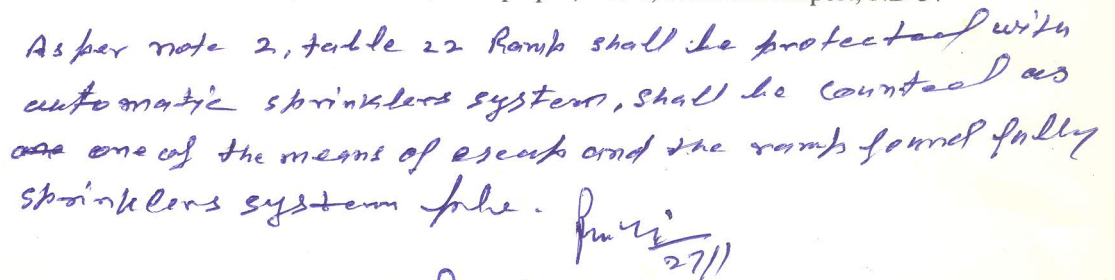 As per note 2, table 22 Ramp shall be protected with
automatic sprinklers system, shall be counted as
one of the means of escap and the ramp found fully
sprinklers system
27/1